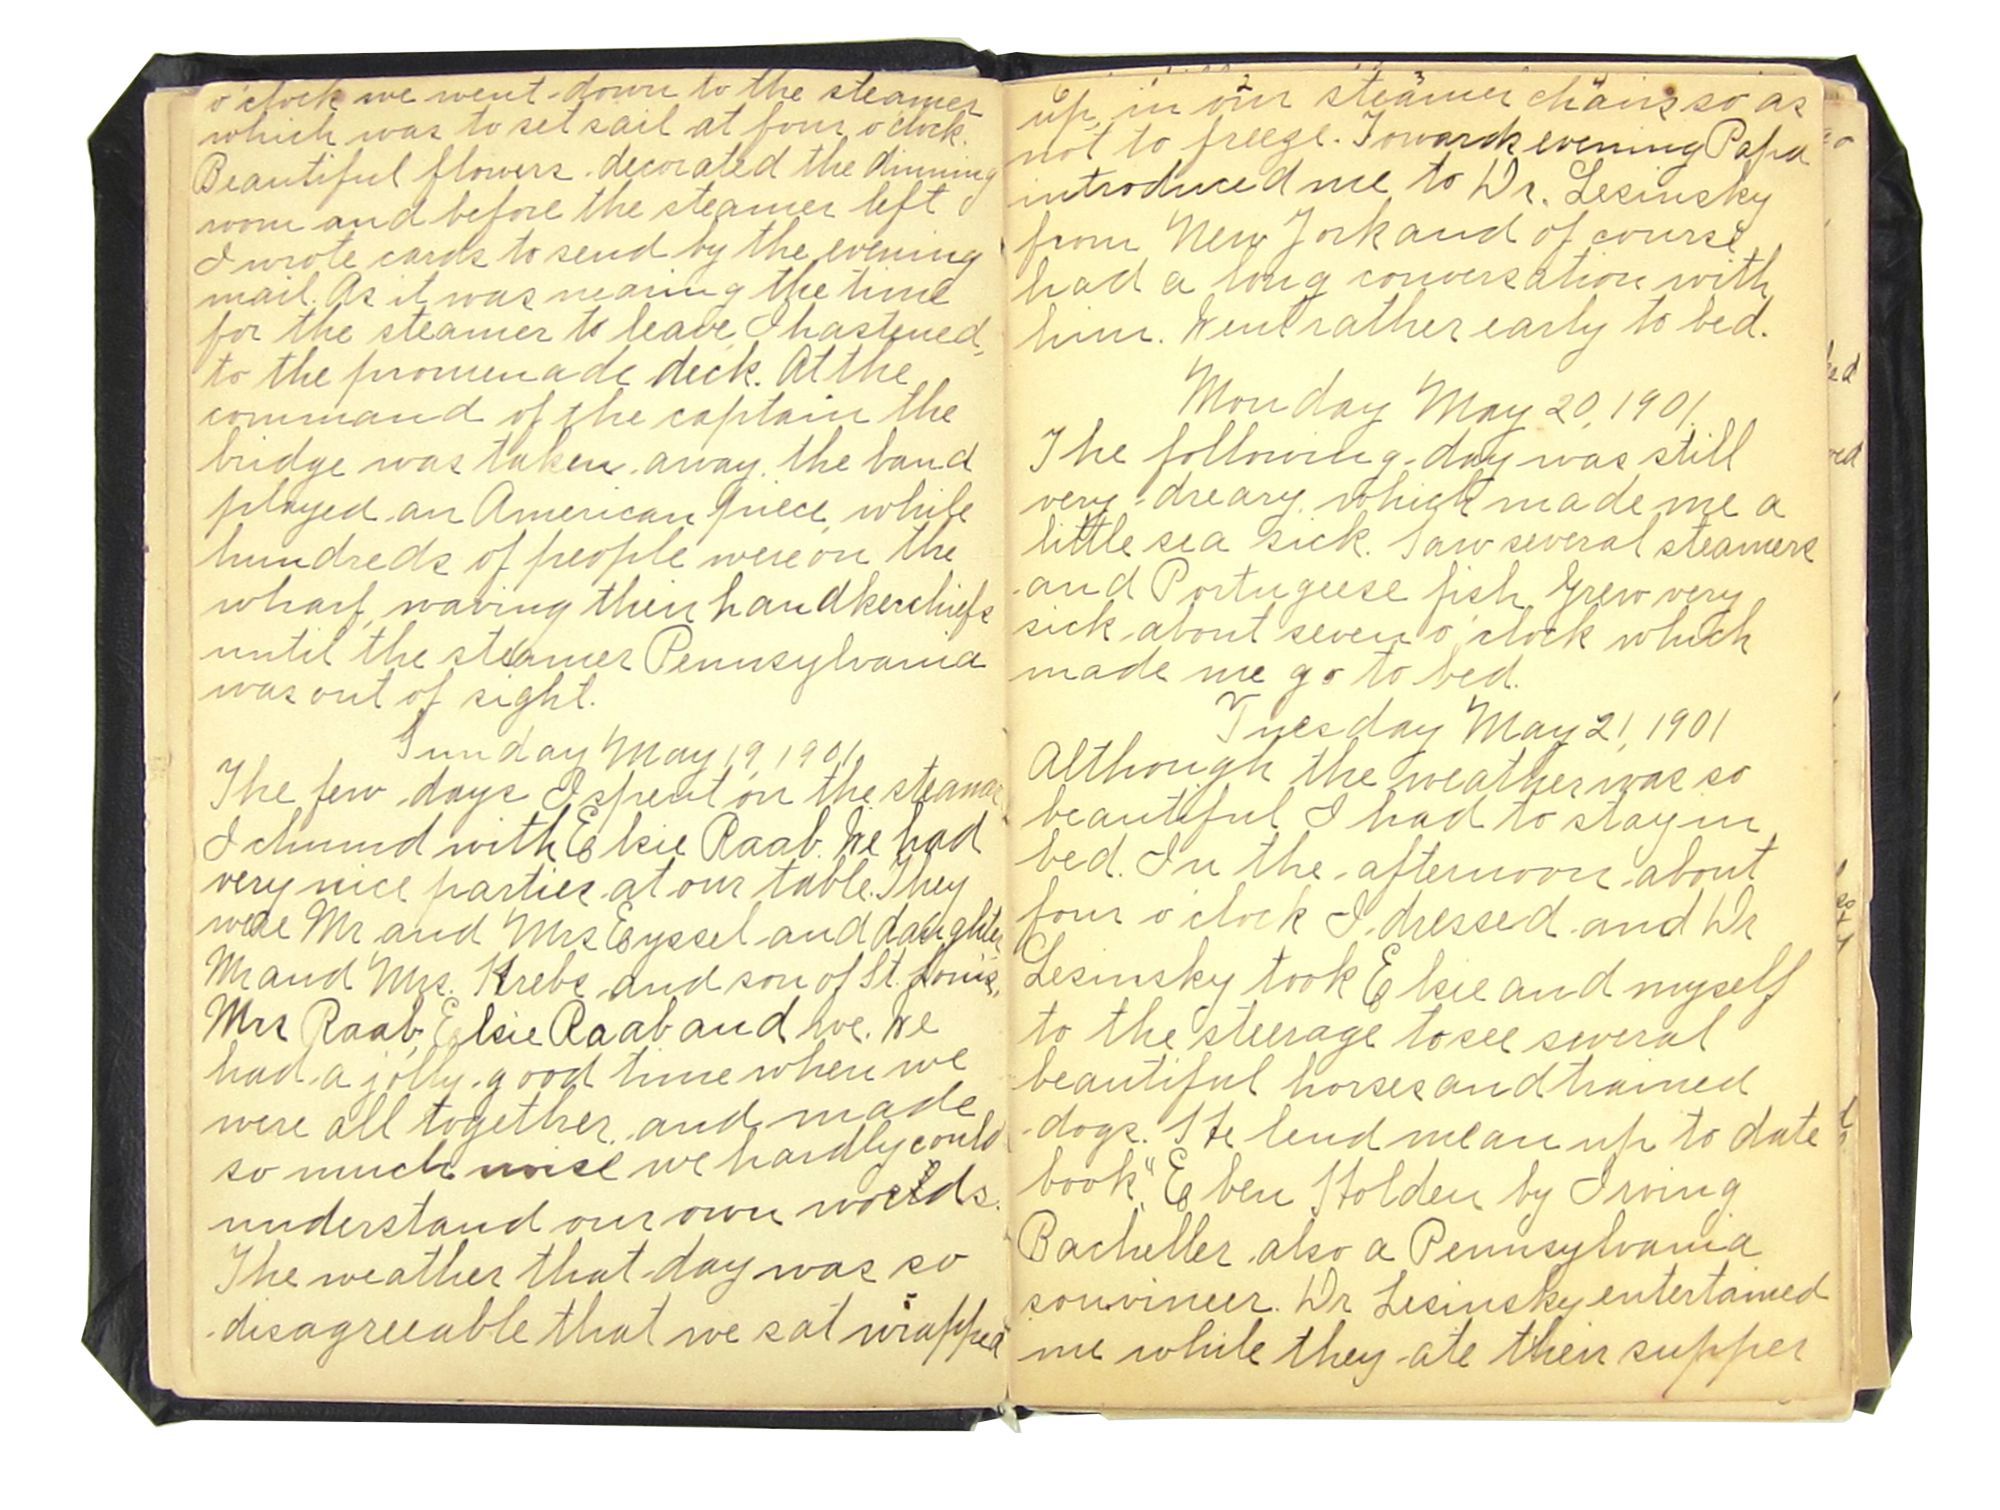 o'clock we went down to the steamer
which was to set sail at four o'clock.
Beautiful flowers decorated the dinning
room and before the steamer left
I wrote cards to send by the evening
mail. As it was nearing the time
for the steamer to leave, I hastened,
to the promenade deck. At the
command of the captain the
bridge was taken away, the band
played an American piece, while
hundreds of people were on the
wharf, waving their handkerchiefs
until the steamer Pennsylvania
was out of sight.
Sunday May 19, 1901
The few days I spent on the steamer
I chumd with Elsie Raab. We had
very nice parties at our table. They
were Mr and Mrs Eyssel and daughter,
Mr and Mrs. Krebs and son of St. Louis,
Mrs Raab, Elsie Raab and we. We
had a jolly good time when we
were all together, and made
so much noise we hardly could
understand our own words.
The weather that day was so
disagreeable that we sat wrapped
up, in our steamer chairs so as
not to freeze. Towards evening Papa
introduced me to Dr. Lesinsky
from New York and of course,
had a long conversation with
him. Went rather early to bed.
Monday May 20, 1901.
The following day was still
very dreary, which made me a
little sea sick. Saw several steamers
and Portugeese fish. Grew very
sick about seven o'clock which
made me go to bed.
Tuesday May 21, 1901
Although the weather was so
beautiful I had to stay in
bed. In the afternoon about
four o'clock I dressed and Dr
Lesinsky took Elsie and myself
to the steerage to see several
beautiful horses and trained
dogs. He lend me an up to date
book, "Eben Holden by Irving
Bacheller also a Pennsylvania
souvineer. Dr Lesinsky entertained
me while they ate their supper